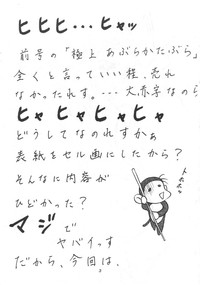 ヒヒヒ…ヒャッ
前号の「極上あぶらかたぶら」
全くと言っていい程、売れ
なか。たれす。…大赤字なのら
ヒャヒャヒャヒャ
どうしてなのれすかぁ
表紙をセル画にしたから?
そんなに内容が
ひどかった?
トホホ
マジで
ヤバイっす
だから、今回は、